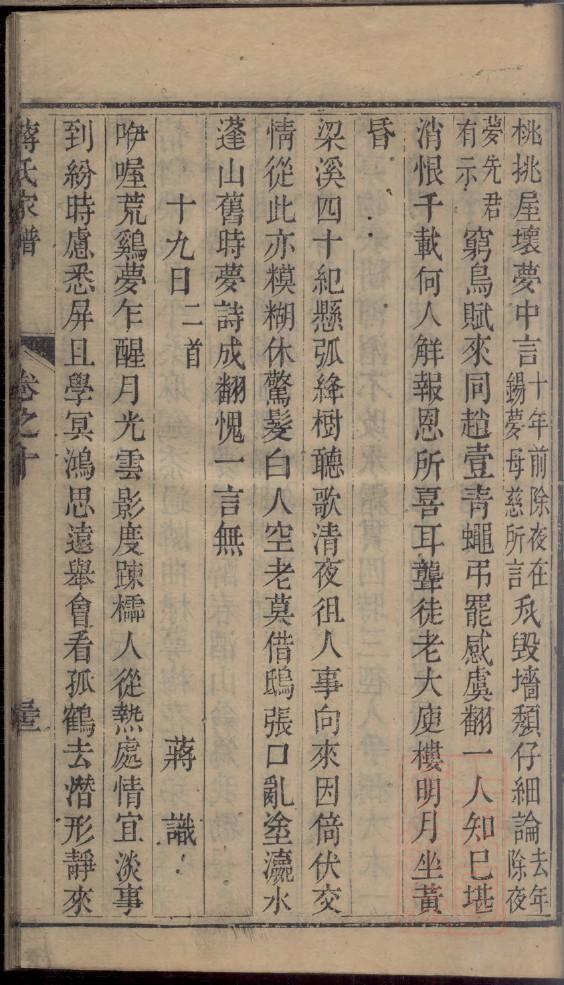 桃挑屋壞夢中言十年前除夜在錫夢母慈所言瓦毀墻頽仔細論去年除夜
夢先君有示窮鳥賦來同趙壹青蠅弔罷感虞翻一人知巳堪
消恨千載何人觧報恩所喜耳聾徒老大庾樓明月坐黃
昏
梁溪四十紀懸弧絳樹聽歌清夜徂人事向來因倚伏交
情從此亦模糊休驚髮白人空老莫借鴟張口亂塗灑水
蓬山舊時夢詩成翻愧一言無
十九日二首 蔣識
咿喔荒鷄夢乍醒月光雲影度踈櫺人從熱處情宜淡事
到紛時慮悉屏且學冥鴻思遠舉會看孤鶴去潛形靜來
蔣氏家譜 卷之十